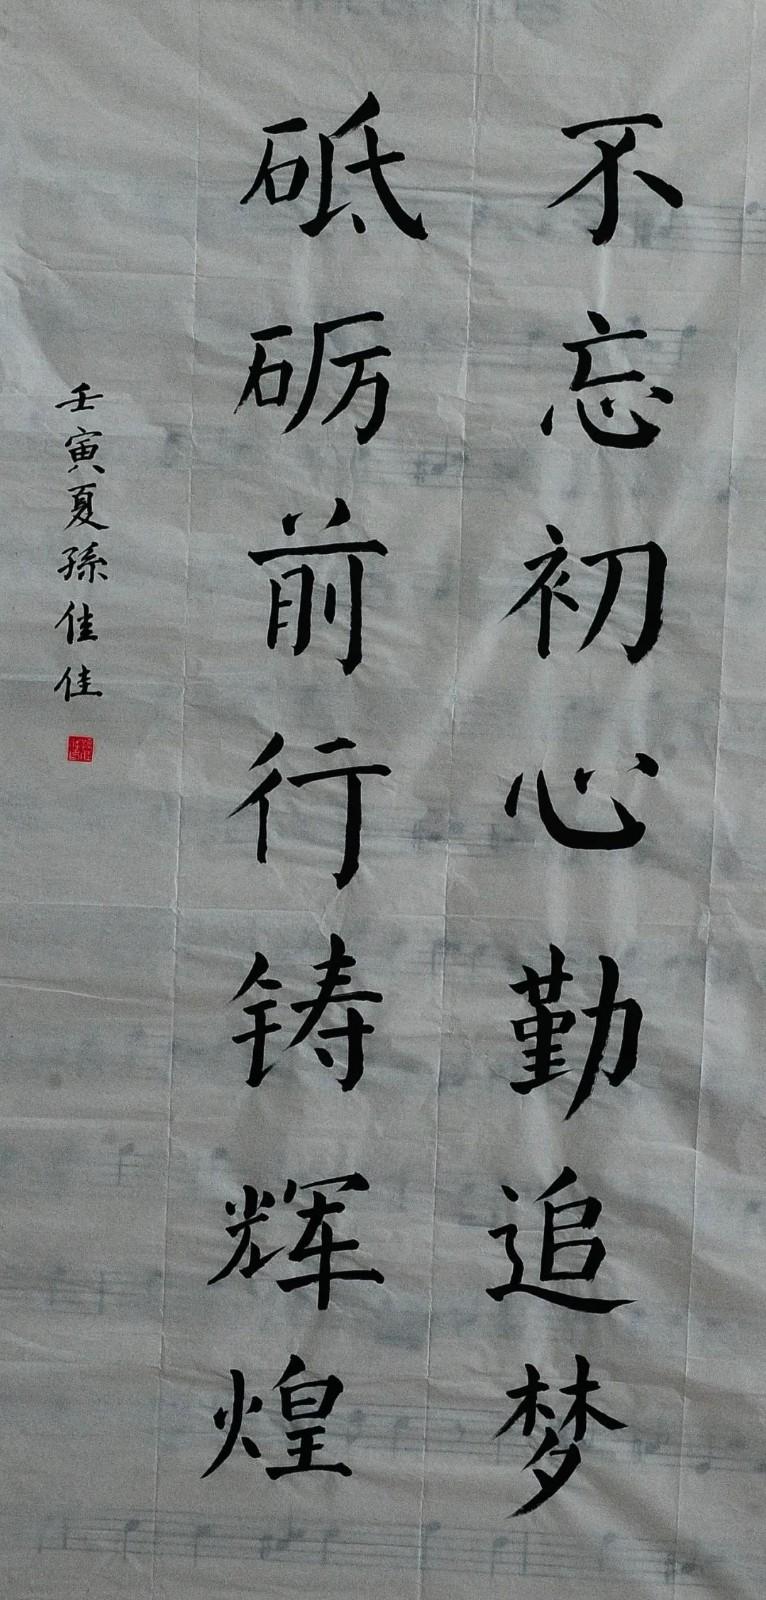 不忘初心勤追梦
砥砺前行铸辉煌
壬寅夏孫佳佳